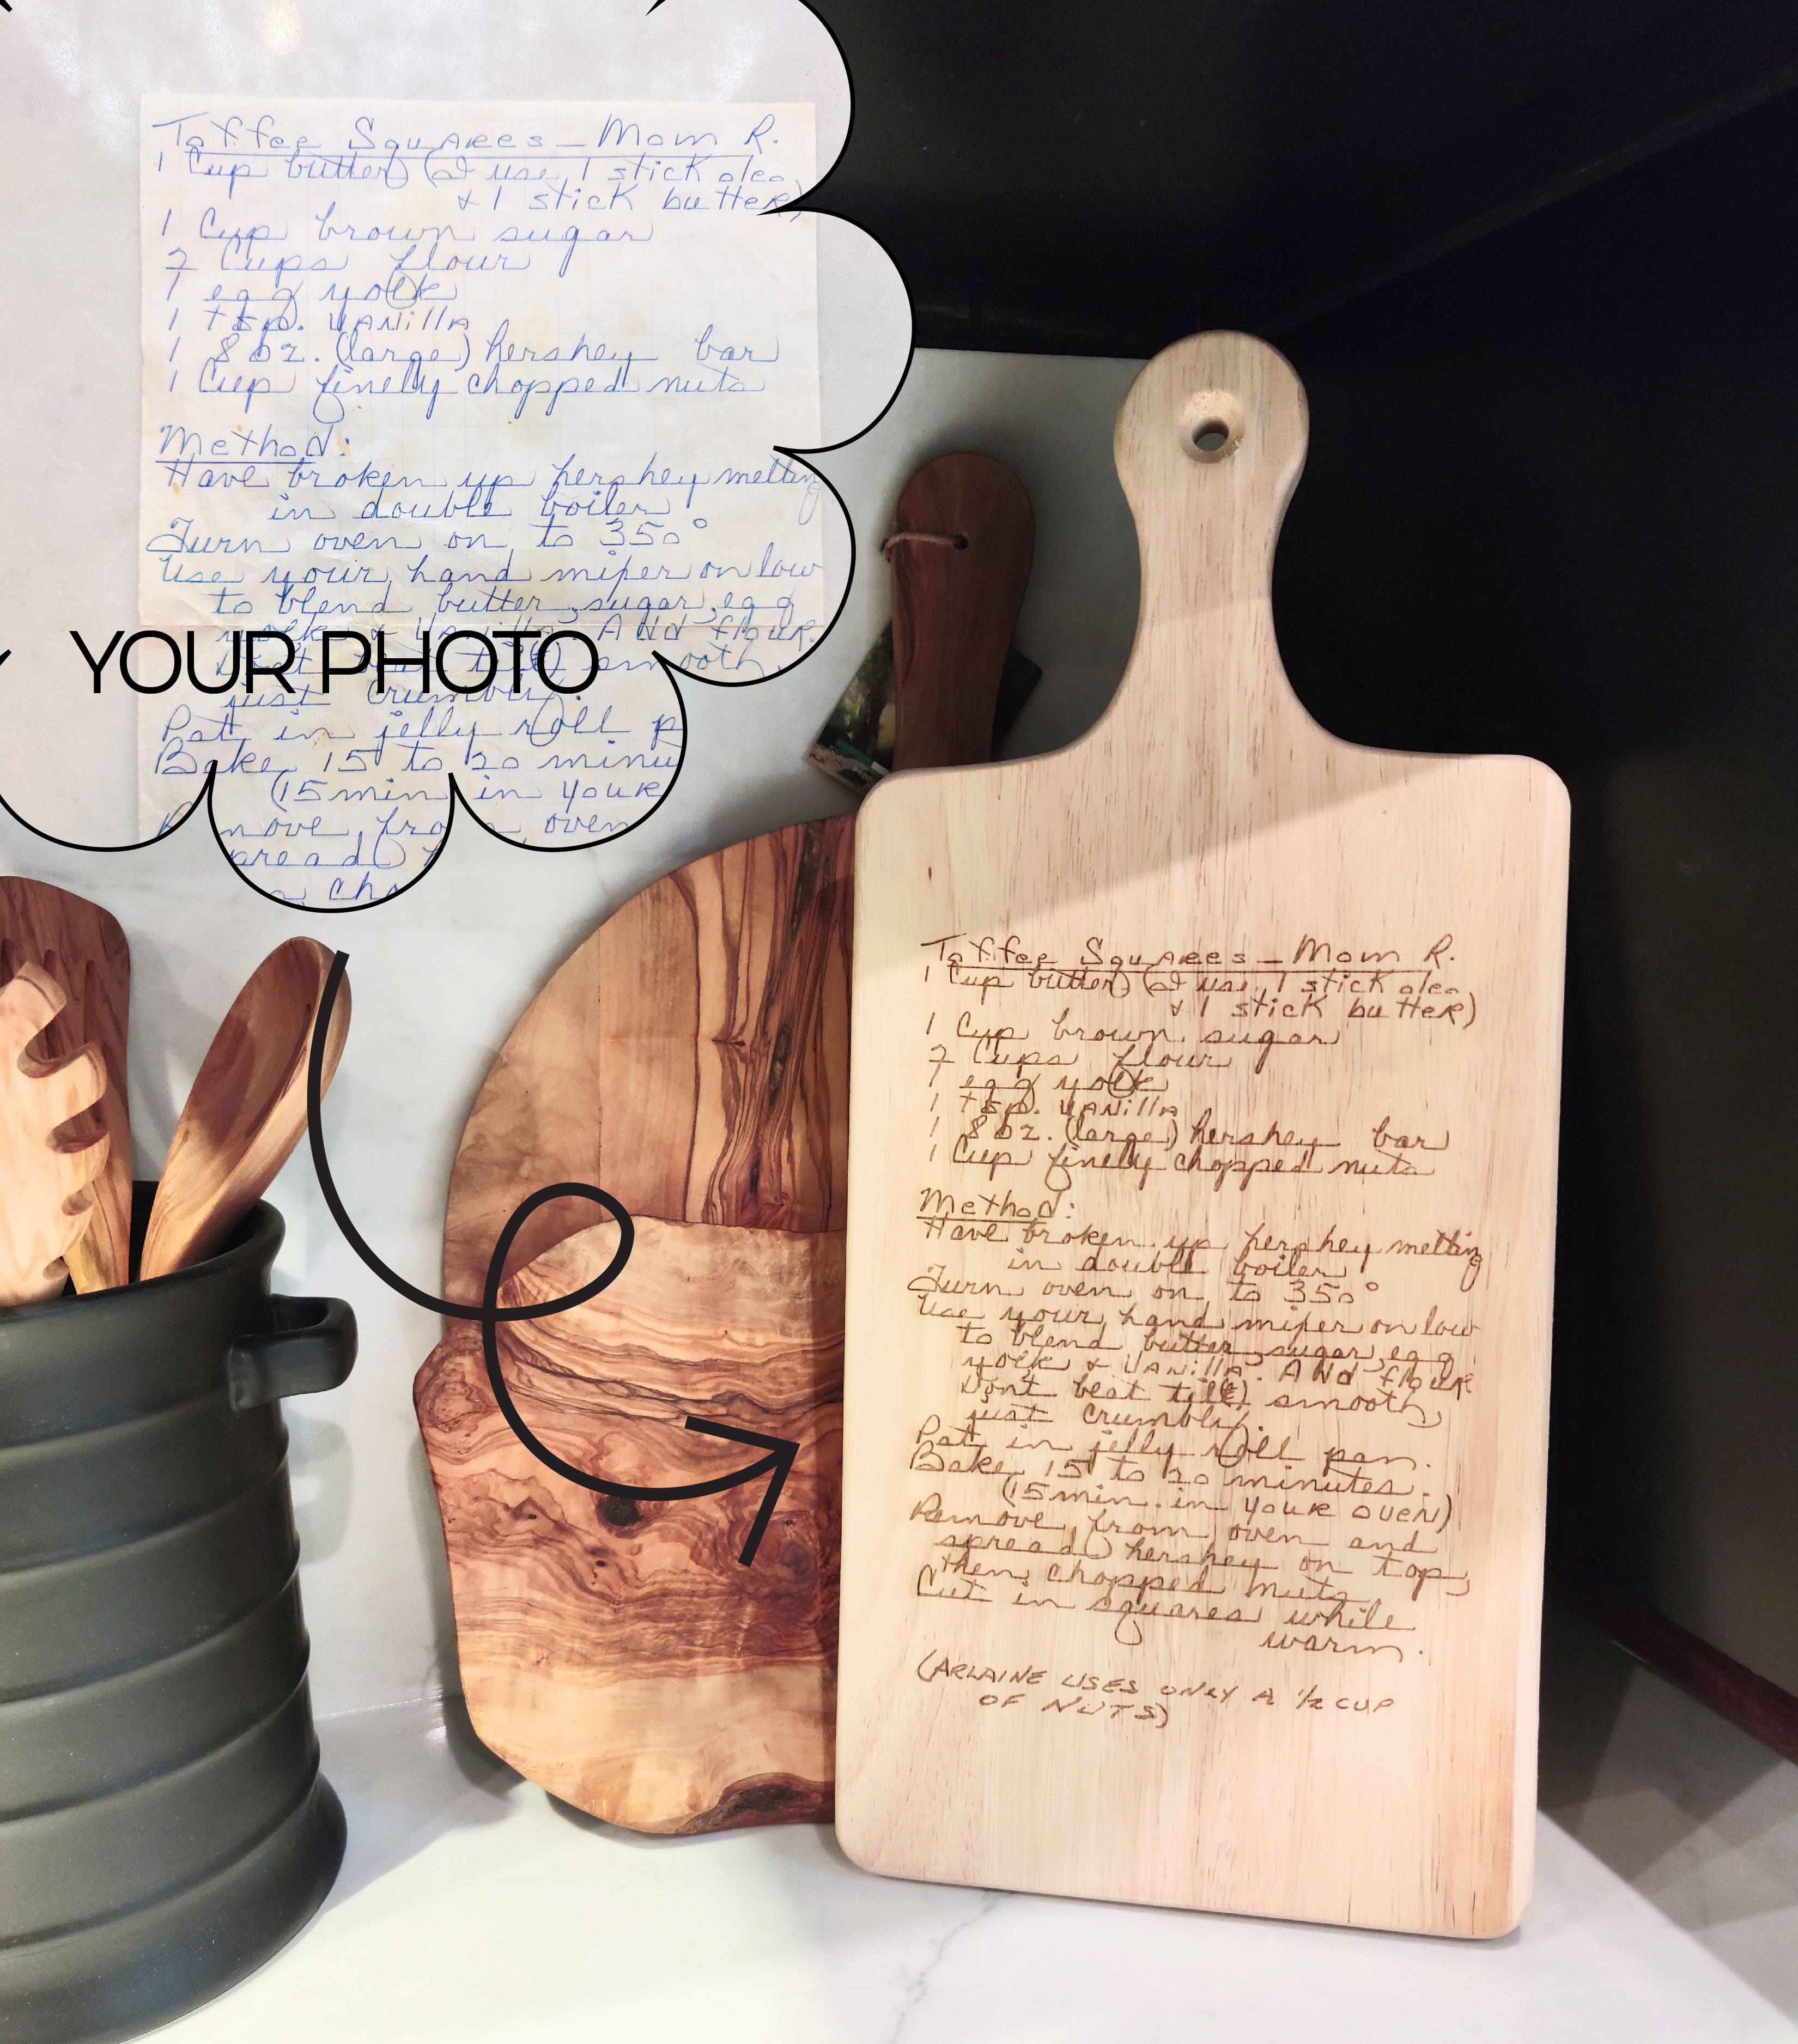 Toffee Squares – Mom R.
1 Cup butter (I use 1 stick oleo
& 1 stick butter)
1 Cup brown sugar
2 Cups flour
1 egg yolk
1 tsp. vanilla
1 8 oz. (large) hershey bar
1 Cup finely chopped nuts
Method:
Have broken up hershey melting
in double boiler
Turn oven on to 350°
Use your hand mixer on low
to blend butter, sugar, egg
yolk & vanilla. And flour.
till smooth
just crumbly.
YOUR PHOTO
Pat in jelly roll p
Bake 15 to 20 minu
(15 min in your
move from oven
pread
cho
Toffee Squares – Mom R.
1 Cup butter (I use 1 stick oleo
& 1 stick butter)
1 Cup brown sugar
2 Cups flour
1 egg yolk
1 tsp. vanilla
1 8 oz. (large) hershey bar
1 Cup finely chopped nuts
Method:
Have broken up hershey melting
in double boiler
Turn oven on to 350°
Use your hand mixer on low
to blend butter, sugar, egg
yolk & vanilla. And flour
Dont beat till smooth,
just crumbly.
Pat in jelly roll pan.
Bake 15 to 20 minutes.
(15 min. in your oven)
Remove from oven and
spread hershey on top,
then chopped nuts
Cut in squares while
warm.
(ARLAINE USES ONLY A 1/2 CUP
OF NUTS)